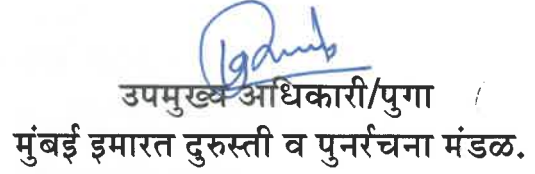 उपमुख्य अधिकारी/पुगा
मुंबई इमारत दुरुस्ती व पुनर्रचना मंडळ.